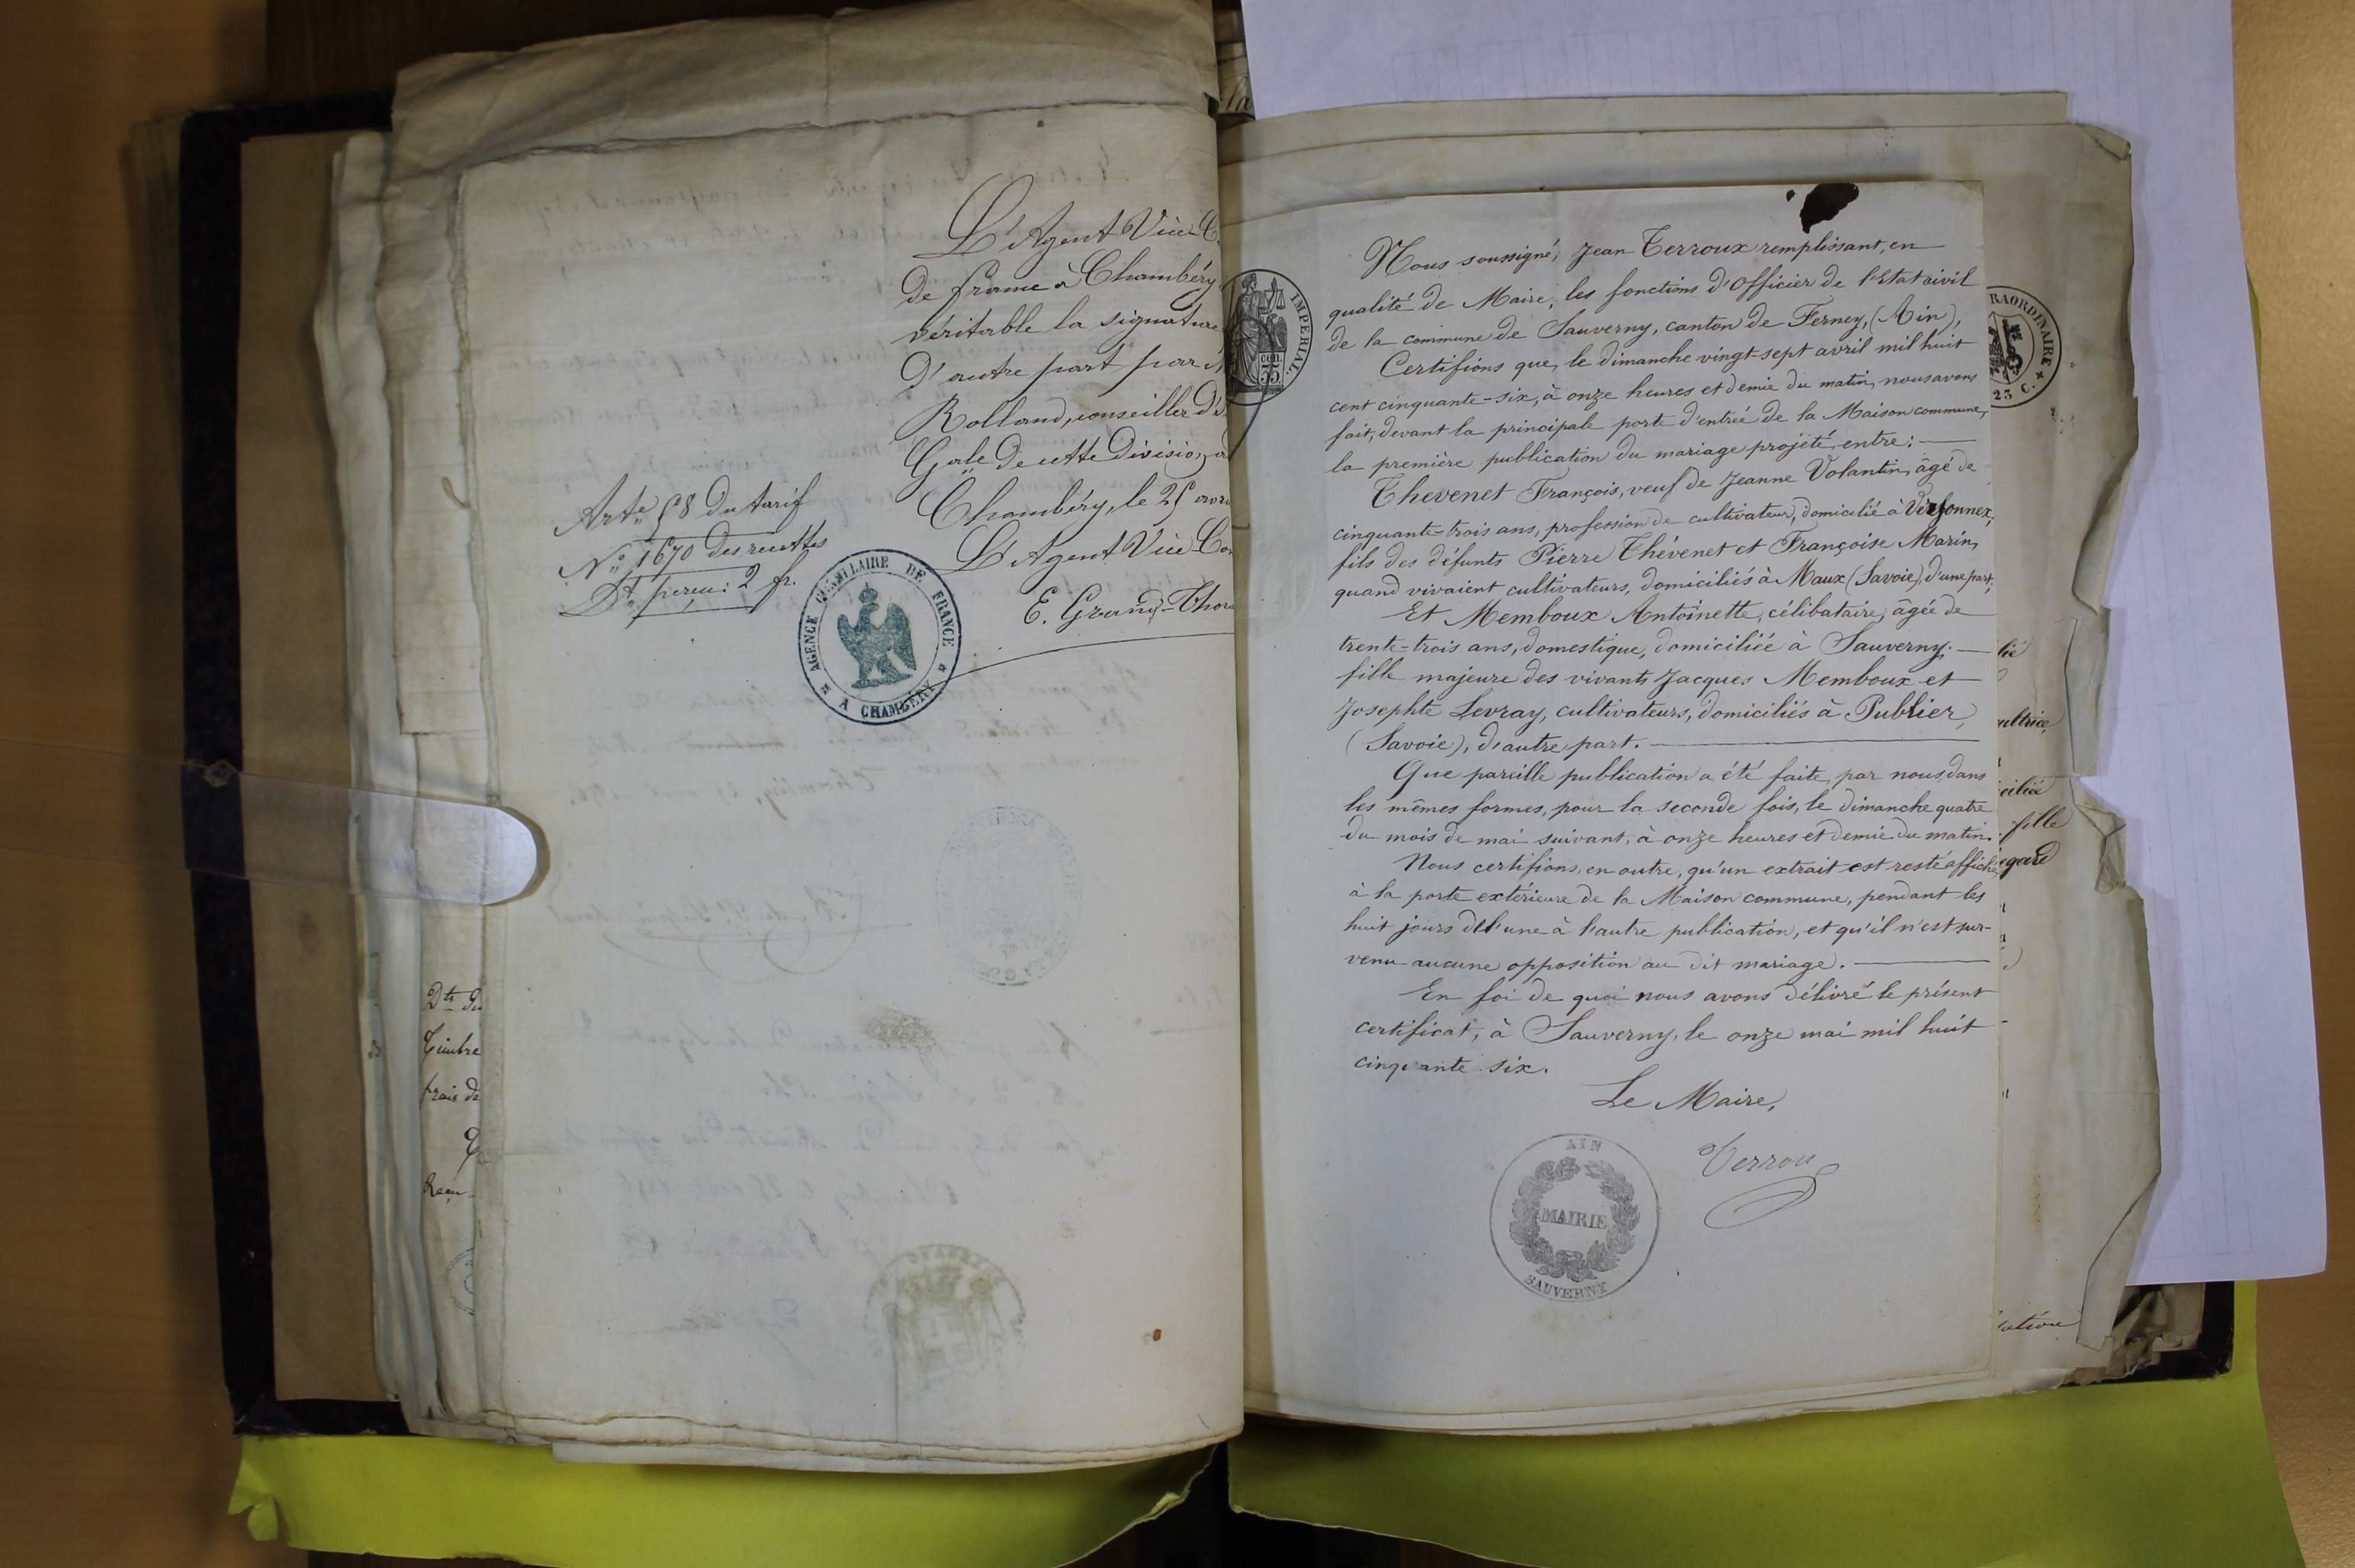 L'Agent Vice-C
de france à Chambéry
véritable la signature
d'autre part par
Rolland, conseiller d'é
Gale de cette Division, a
Chambéry, le 25 avri
L'Agent Vice Con
E. Grand-Thor
Arte 58 du tarif
No 1670 des recettes
Dt perçu: 2 fr.
AGENCE CONSULAIRE DE FRANCE
A CHAMBÉRY
Dts du
Timbre
frais de
Reçu
IMPERIAL
cen.
35
RAORDINAIRE
25 C.
Nous soussigné, Jean Terroux remplissant, en
qualité de Maire, les fonctions d'Officier de l'Etat civil
de la commune de Sauverny, canton de Ferney, (Ain),
Certifions que, le dimanche vingt-sept avril mil huit
cent cinquante-six, à onze heures et demie du matin, nous avons
fait, devant la principale porte d'entrée de la Maison commune,
la première publication du mariage projeté, entre:
Thevenet François, veuf de Jeanne Volantin, âgé de
cinquante-trois ans, profession de cultivateur, domicilié à Versonnex,
fils des défunts Pierre Thévenet et Françoise Marin,
quand vivaient cultivateurs, domiciliés à Maux (Savoie), d'une part;
Et Memboux Antoinette, célibataire, âgée de
trente-trois ans, domestique, domiciliée à Sauverny.
fille majeure des vivants Jacques Memboux et
Josephte Levray, cultivateurs, domiciliés à Publier,
(Savoie), d'autre part.
Que pareille publication a été faite, par nous, dans
les mêmes formes, pour la seconde fois, le dimanche quatre
du mois de mai suivant, à onze heures et demie du matin.
Nous certifions, en outre, qu'un extrait est resté affiché
à la porte extérieure de la Maison commune, pendant les
huit jours de l'une à l'autre publication, et qu'il n'est sur-
venu aucune opposition au dit mariage.
En foi de quoi nous avons délivré le présent
certificat, à Sauverny, le onze mai mil huit
cinquante six.
Le Maire,
Terroux
AIN
MAIRIE
SAUVERNY
lié
ultrice
ciliée
fille
egard